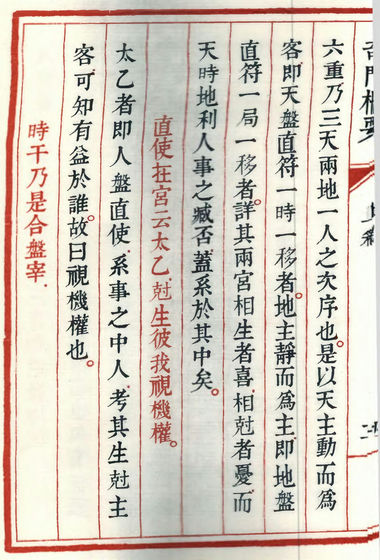 奇門樞要
六重乃三天兩地一人之次序也。是以天主動而為
客即天盤直符一時一移者。地主靜而為主即地盤
直符一局一移者。詳其兩宮相生者喜.相尅者憂而
天時地利人事之臧否.蓋系於其中矣。
直使在宮云太乙.尅生彼我視機權。
太乙者即人盤直使.系事之中人.考其生尅主
客可知有益於誰。故曰視機權也。
時干乃是合盤宰.